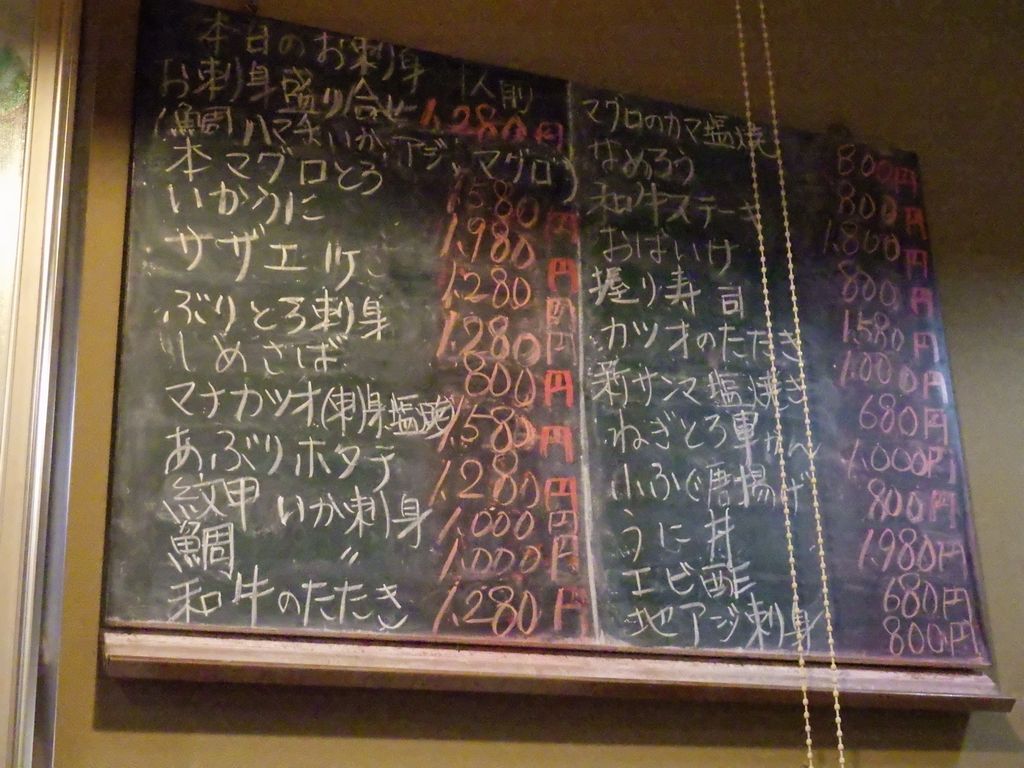 本日のお刺身
お刺身盛り合せ 1人前 1,280円
(鯛 ハマチ いか、アジ、マグロ)
本マグロとろ 1,580円
いかうに 1,980円
サザエ 1,280円
ぶりとろ刺身 1,280円
しめさば 800円
マナカツオ(刺身 塩焼) 1,580円
あぶりホタテ 1,280円
紋甲いか刺身 1,000円
鯛 〃 1,000円
和牛のたたき 1,280円
マグロのカマ塩焼 800円
なめろう 800円
和牛ステーキ 1,800円
おばいけ 800円
握り寿司 1,580円
カツオのたたき 1,000円
新サンマ塩焼き 680円
ねぎとろ軍かん 1,000円
小ふぐ唐揚げ 800円
うに丼 1,980円
エビ酢 680円
地アジ刺身 800円